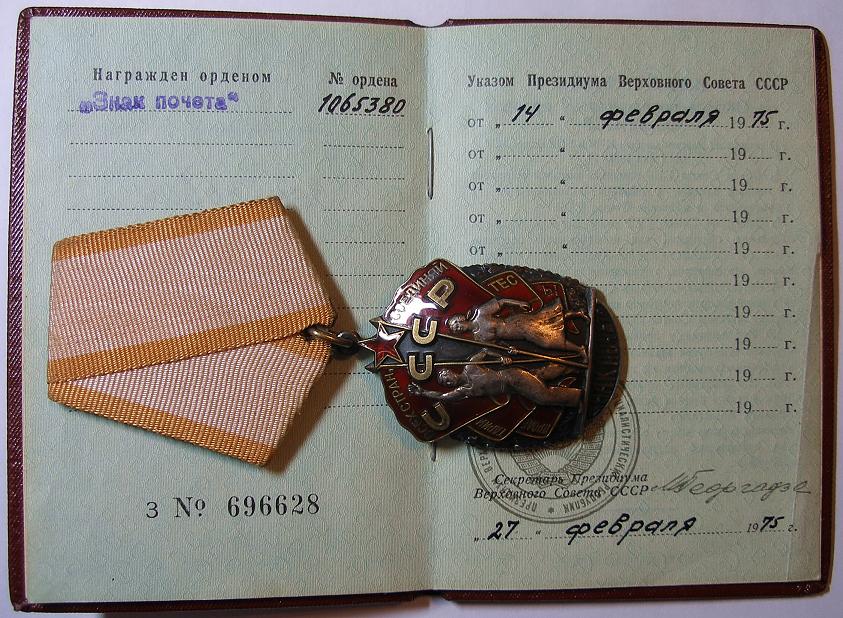 Награжден орденом
№ ордена
„Знак почета“
1065380
з № 696628
Указом Президиума Верховного Совета СССР
от „ 14 “ февраля 1975 г.
от „ “ 19 г.
от „ “ 19 г.
от „ “ 19 г.
от „ “ 19 г.
19 г.
19 г.
19 г.
19 г.
19 г.
СССР
Секретарь Президиума
Верховного Совета СССР
МГеоргадзе
„ 27 “ февраля 1975 г.